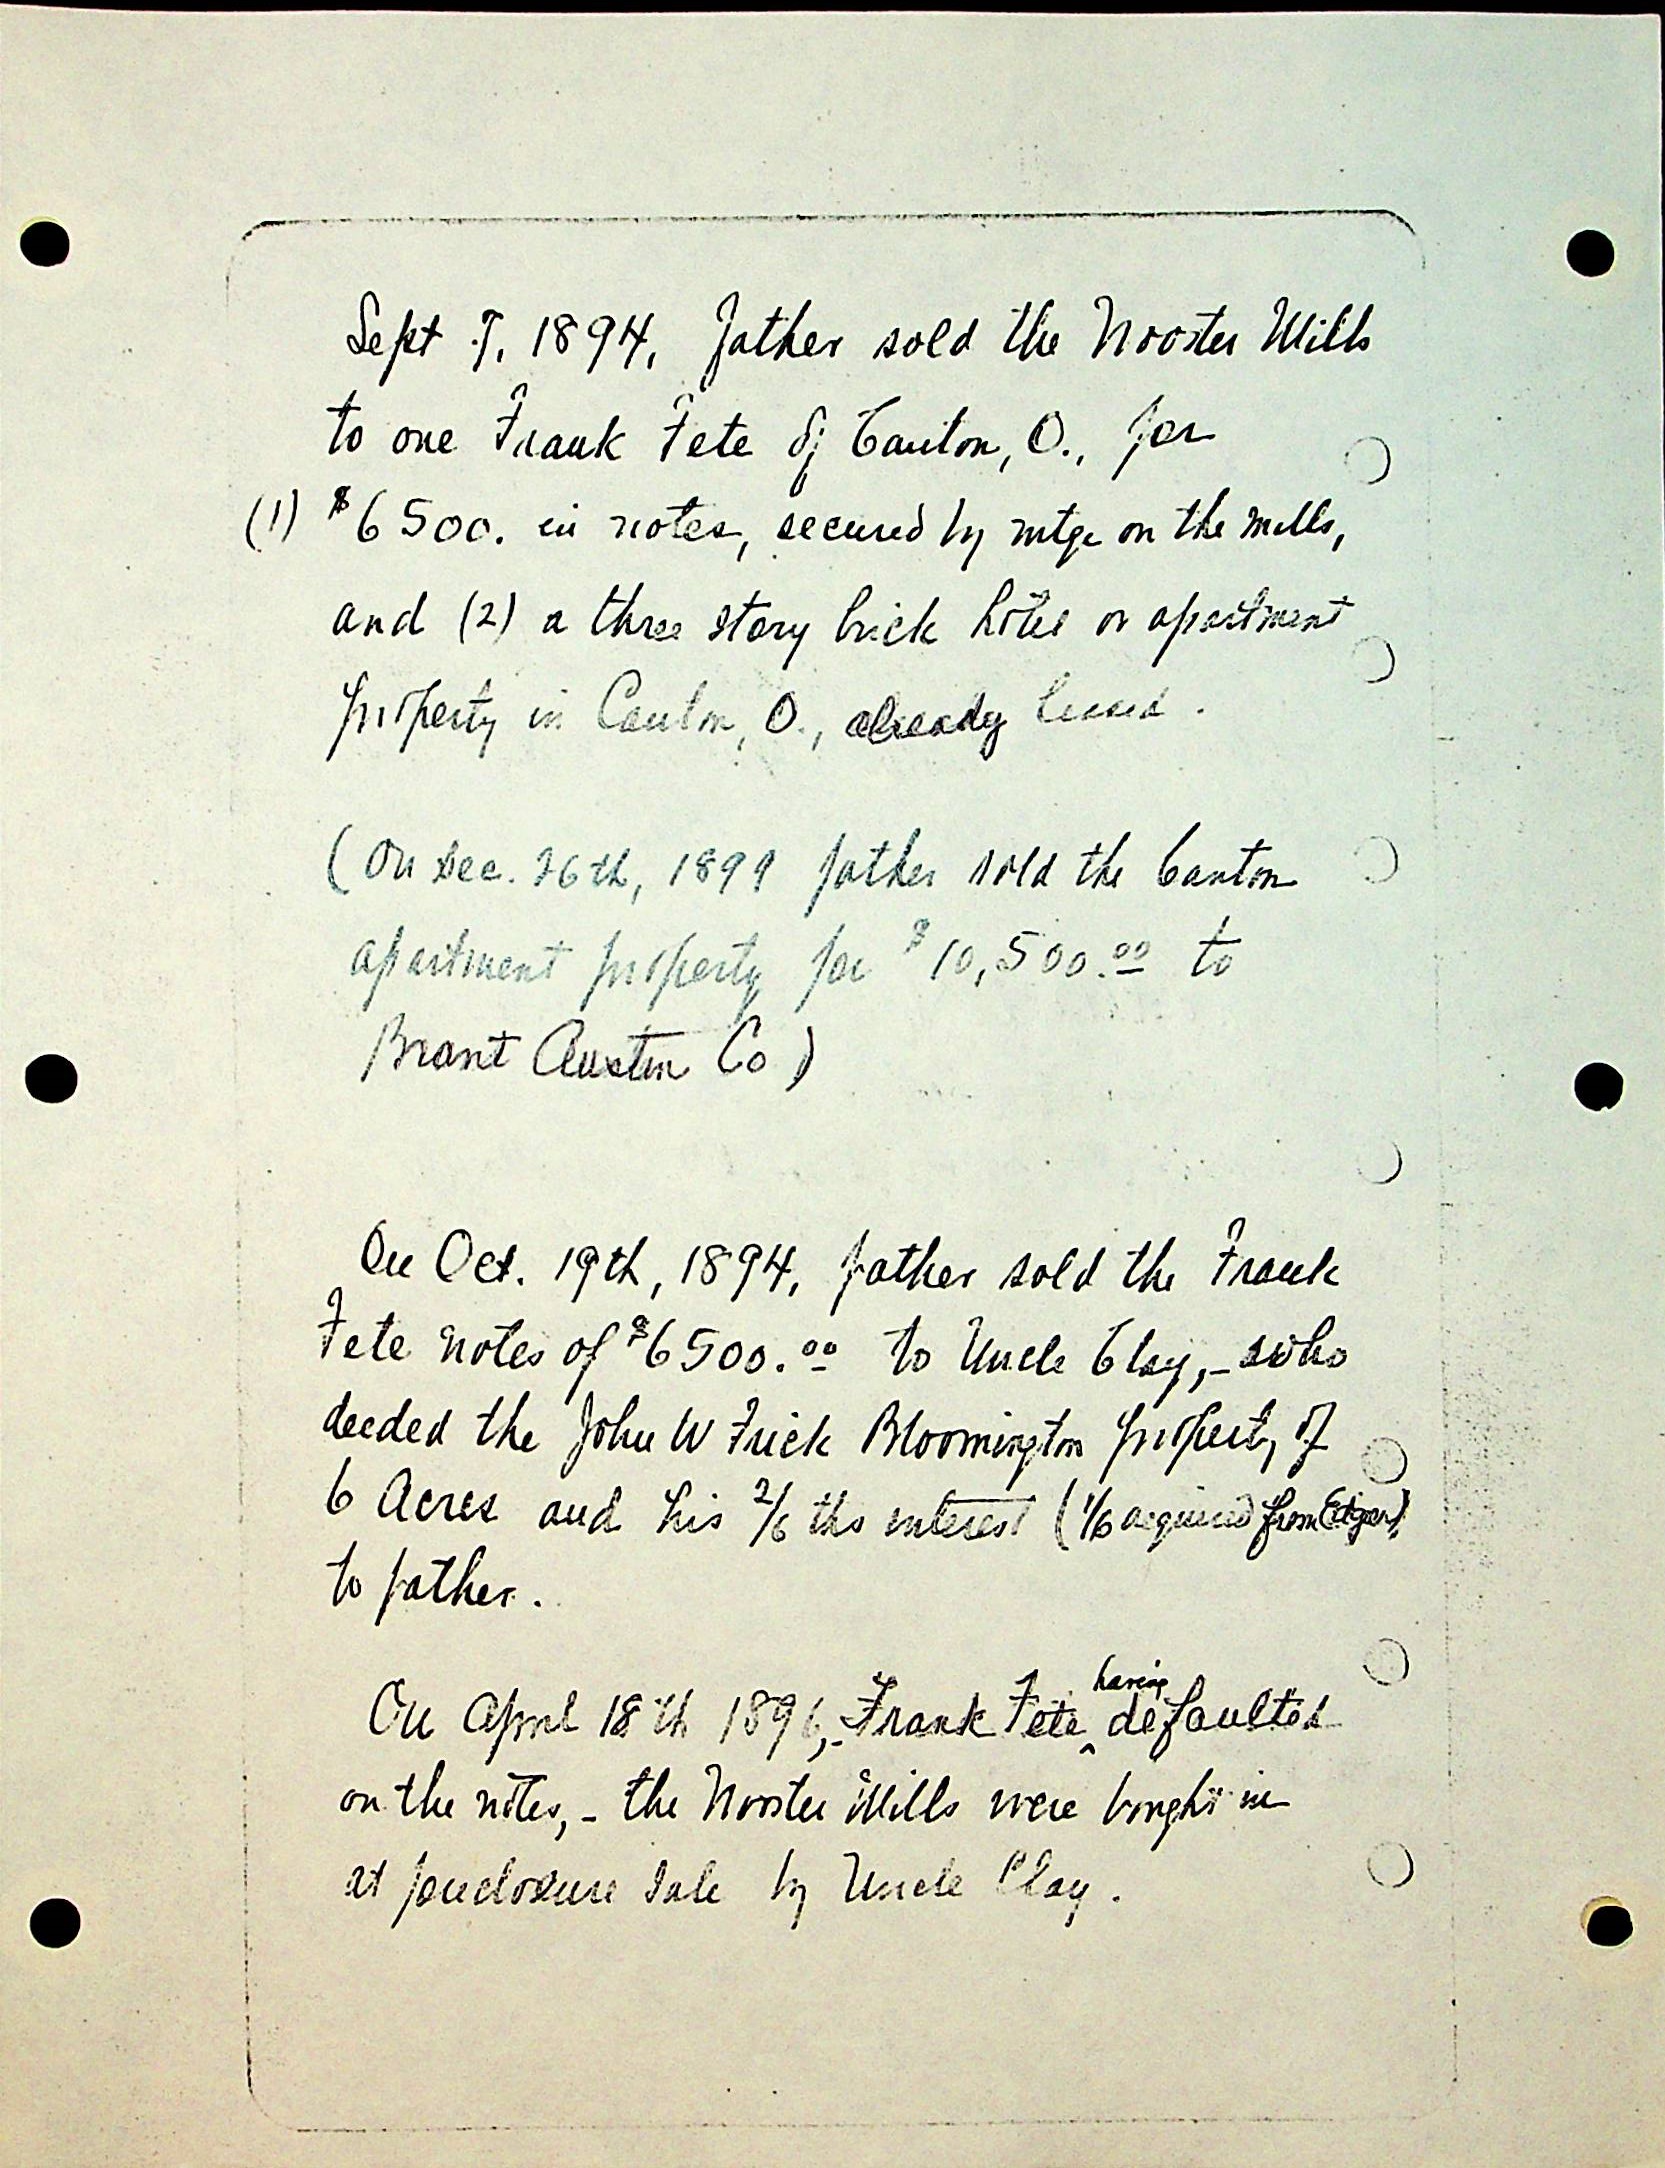 Sept 7, 1894, father sold the Wooster Mills
to one Frank Fete of Canton, O., for
(1) $6500. in notes, secured by mtge on the mills,
and (2) a three story brick hotel or apartment
property in Canton, O., already leased.
(On Dec. 26th, 1899 father sold the Canton
apartment property for $10,500.00 to
Brant Austin Co)
On Oct. 19th, 1894, father sold the Frank
Fete notes of $6500.00 to Uncle Clay, - who
deeded the John W Frick Bloomington property of
6 Acres and his 2/6 ths interest (1/6 acquired from Edgar)
to father.
On April 18th 1896, - Frank Fete having defaulted
on the notes, - the Wooster Mills were bought in
at foreclosure sale by Uncle Clay.